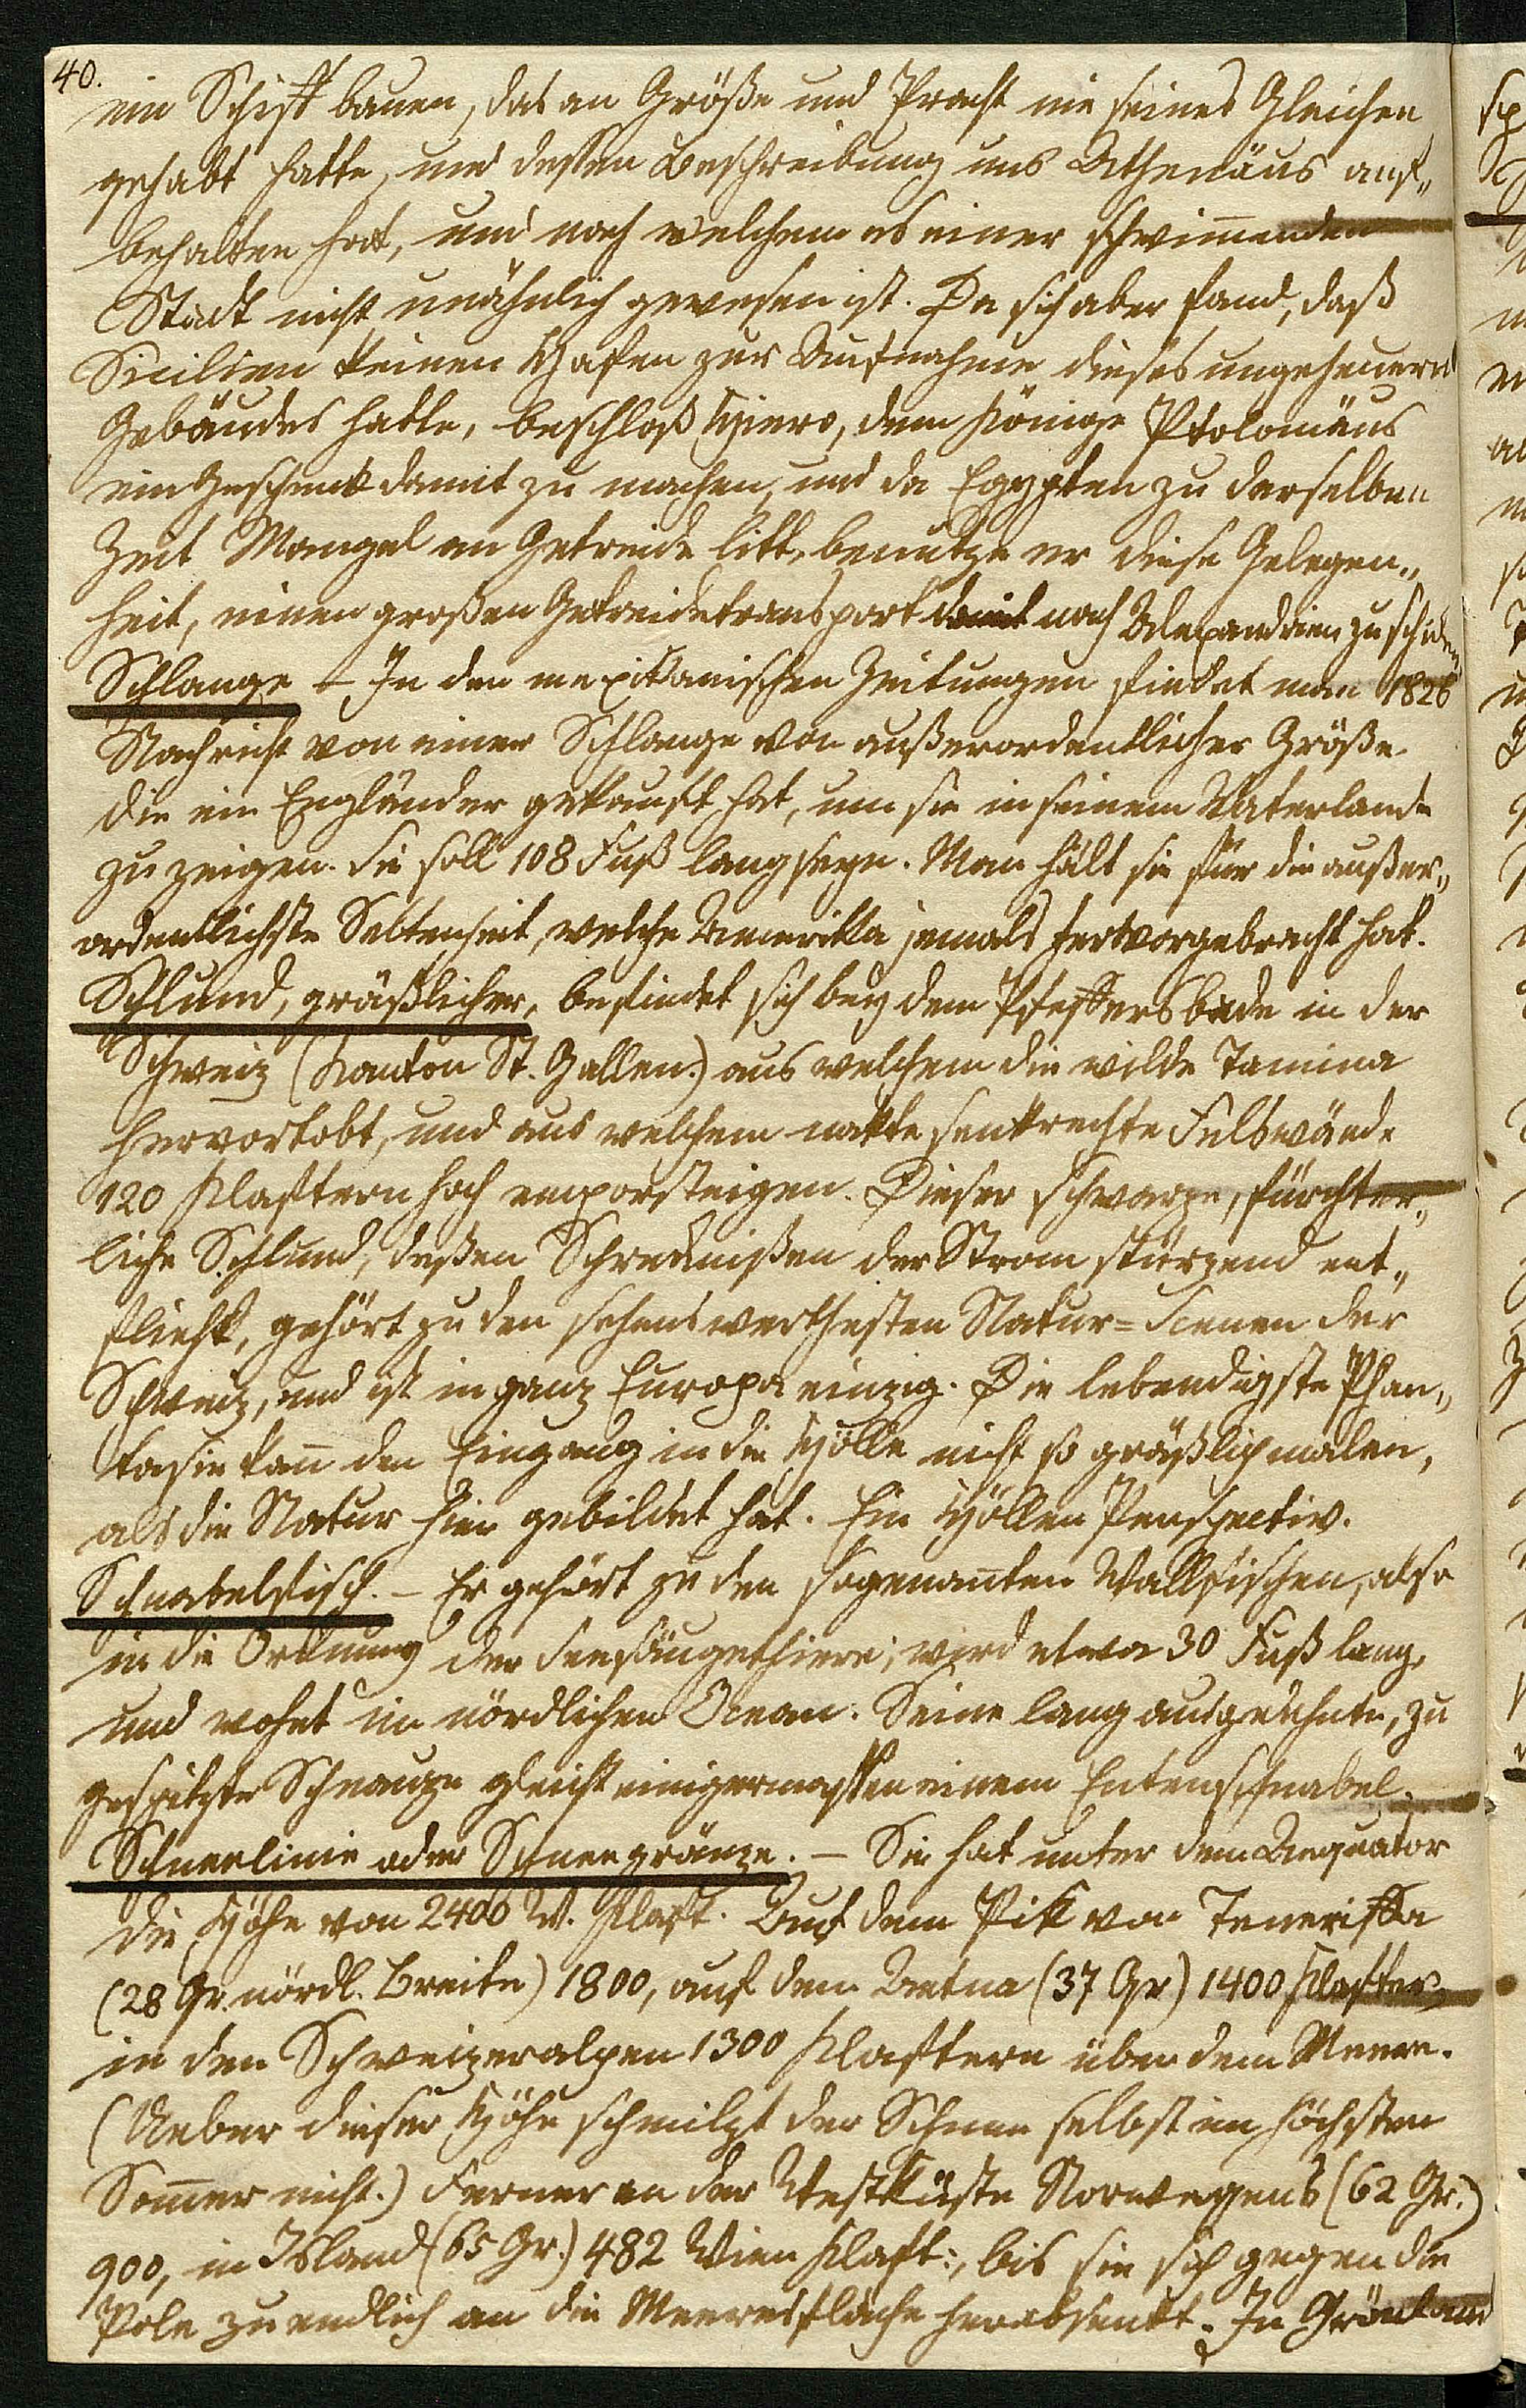 40.
ein Schiff bauen, das an Größe und Pracht nie seines Gleichen
gehabt hatte, und deßen Beschreibung uns Athenäus auf„
behalten hat, und nach welchem es einer schwim̅enden
Stadt nicht unähnlich gewesen ist. Da sich aber fand, daß
Sicilien keinen Hafen zur Aufnahme dieses ungeheuern
Gebäudes hatte, beschloß Hiero, dem Könige Ptolomäus
ein Geschenk damit zu machen, und da Egypten zu derselben
Zeit Mangel an Getreide litt, benutze er diese Gelegen„
heit, einen großen Getreidetransport damit nach Alexandrien zu schicken.
Schlange – In den mexikanischen Zeitungen findet man 1826
Nachricht von einer Schlange von außerordentlicher Größe
die ein Engländer gekauft hat, um sie in seinem Vaterlande
zu zeigen. Sie soll 108 Fuß lang seyn. Man hält sie für die außer„
ordentlichste Seltenheit, welche Amerikka jemals hervorgebracht hat.
Schlund, gräßlicher, befindet sich bey dem Pfeffersbade in der
Schweiz (Kanton St. Gallen.) aus welchem die wilde Tamina
hervortobt, und aus welchem nakte senkrechte Felswände
120 Klaftern hoch emporsteigen. Dieser schwarze, fürchter„
liche Schlund, deßen Schrecknißen der Strom stürzend ent„
flieht, gehört zu den sehenswerthesten Natur=Scenen der
Schweiz, und ist in ganz Europa einzig. Die lebendigste Phan„
tasie kan̅ den Eingang in die Hölle nicht so gräßlich malen,
als die Natur hier gebildet hat. Ein Höllen Perspectiv.
Schnabelfisch. – Er gehört zu den sogenan̅ten Wallfischen, also
in die Ordnung der Seesäugethiere; wird etwa 30 Fuß lang,
und wohnt im nördlichen Ocean. Seine lang ausgedehnte, zu
gespitzte Schnauze gleicht einigermassen einem Entenschnabel.
Schneelinie oder Schneegränze. – Sie hat unter dem Aequator
die Höhe von 2400 W. Klaft. Auf dem Pik von Teneriffa
(28 Gr. nördl. Breite) 1800, auf dem Aetna (37 Gr) 1400 Klafter,
in den Schweizeralpen 1300 Klaftern über dem Meere.
(Ueber dieser Höhe schmilzt der Schnee selbst im höchsten
Som̅er nicht.) Ferner an der Westküste Norwegens (62 Gr.)
900, in Island (65 Gr.) 482 Wien Klaft:, bis sie sich gegen die
Pole zu endlich an die Meeresfläche herabsenkt. In Grönland